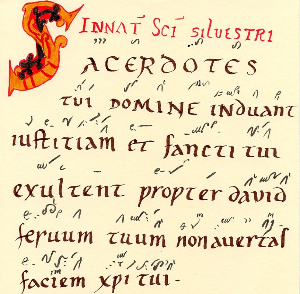 IN NAT̄ SCĪ SILVESTRI
SACERDOTES
tui DOMINE induant
iustitiam et sancti tui
exultent propter david
seruum tuum non auertas
faciem xp̄i tui·